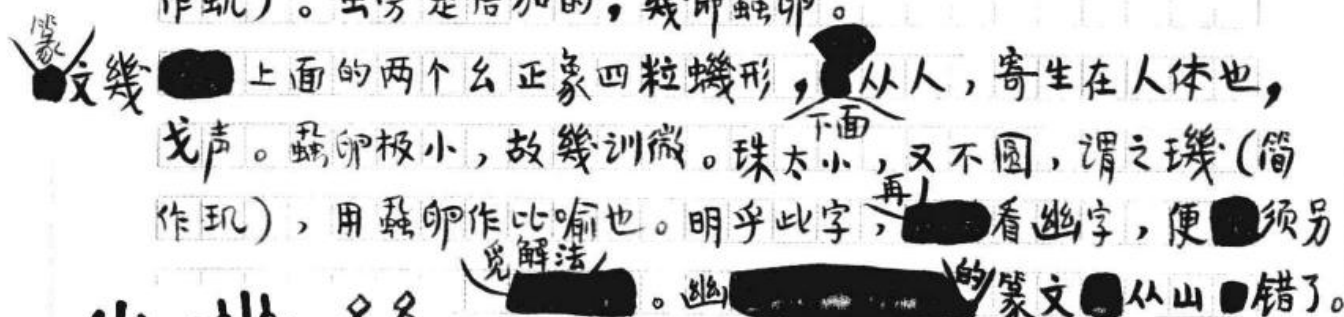 作玑)。虫旁是后加的,幾即蝨卵。
篆文幾上面的两个幺正象四粒蟣形,下面从人,寄生在人体也,
戈声。蝨卵极小,故幾训微。珠太小,又不圆,谓之璣(简
作玑),用蝨卵作比喻也。明乎此字,再看幽字,便须另
觅解法。幽的篆文从山错了。